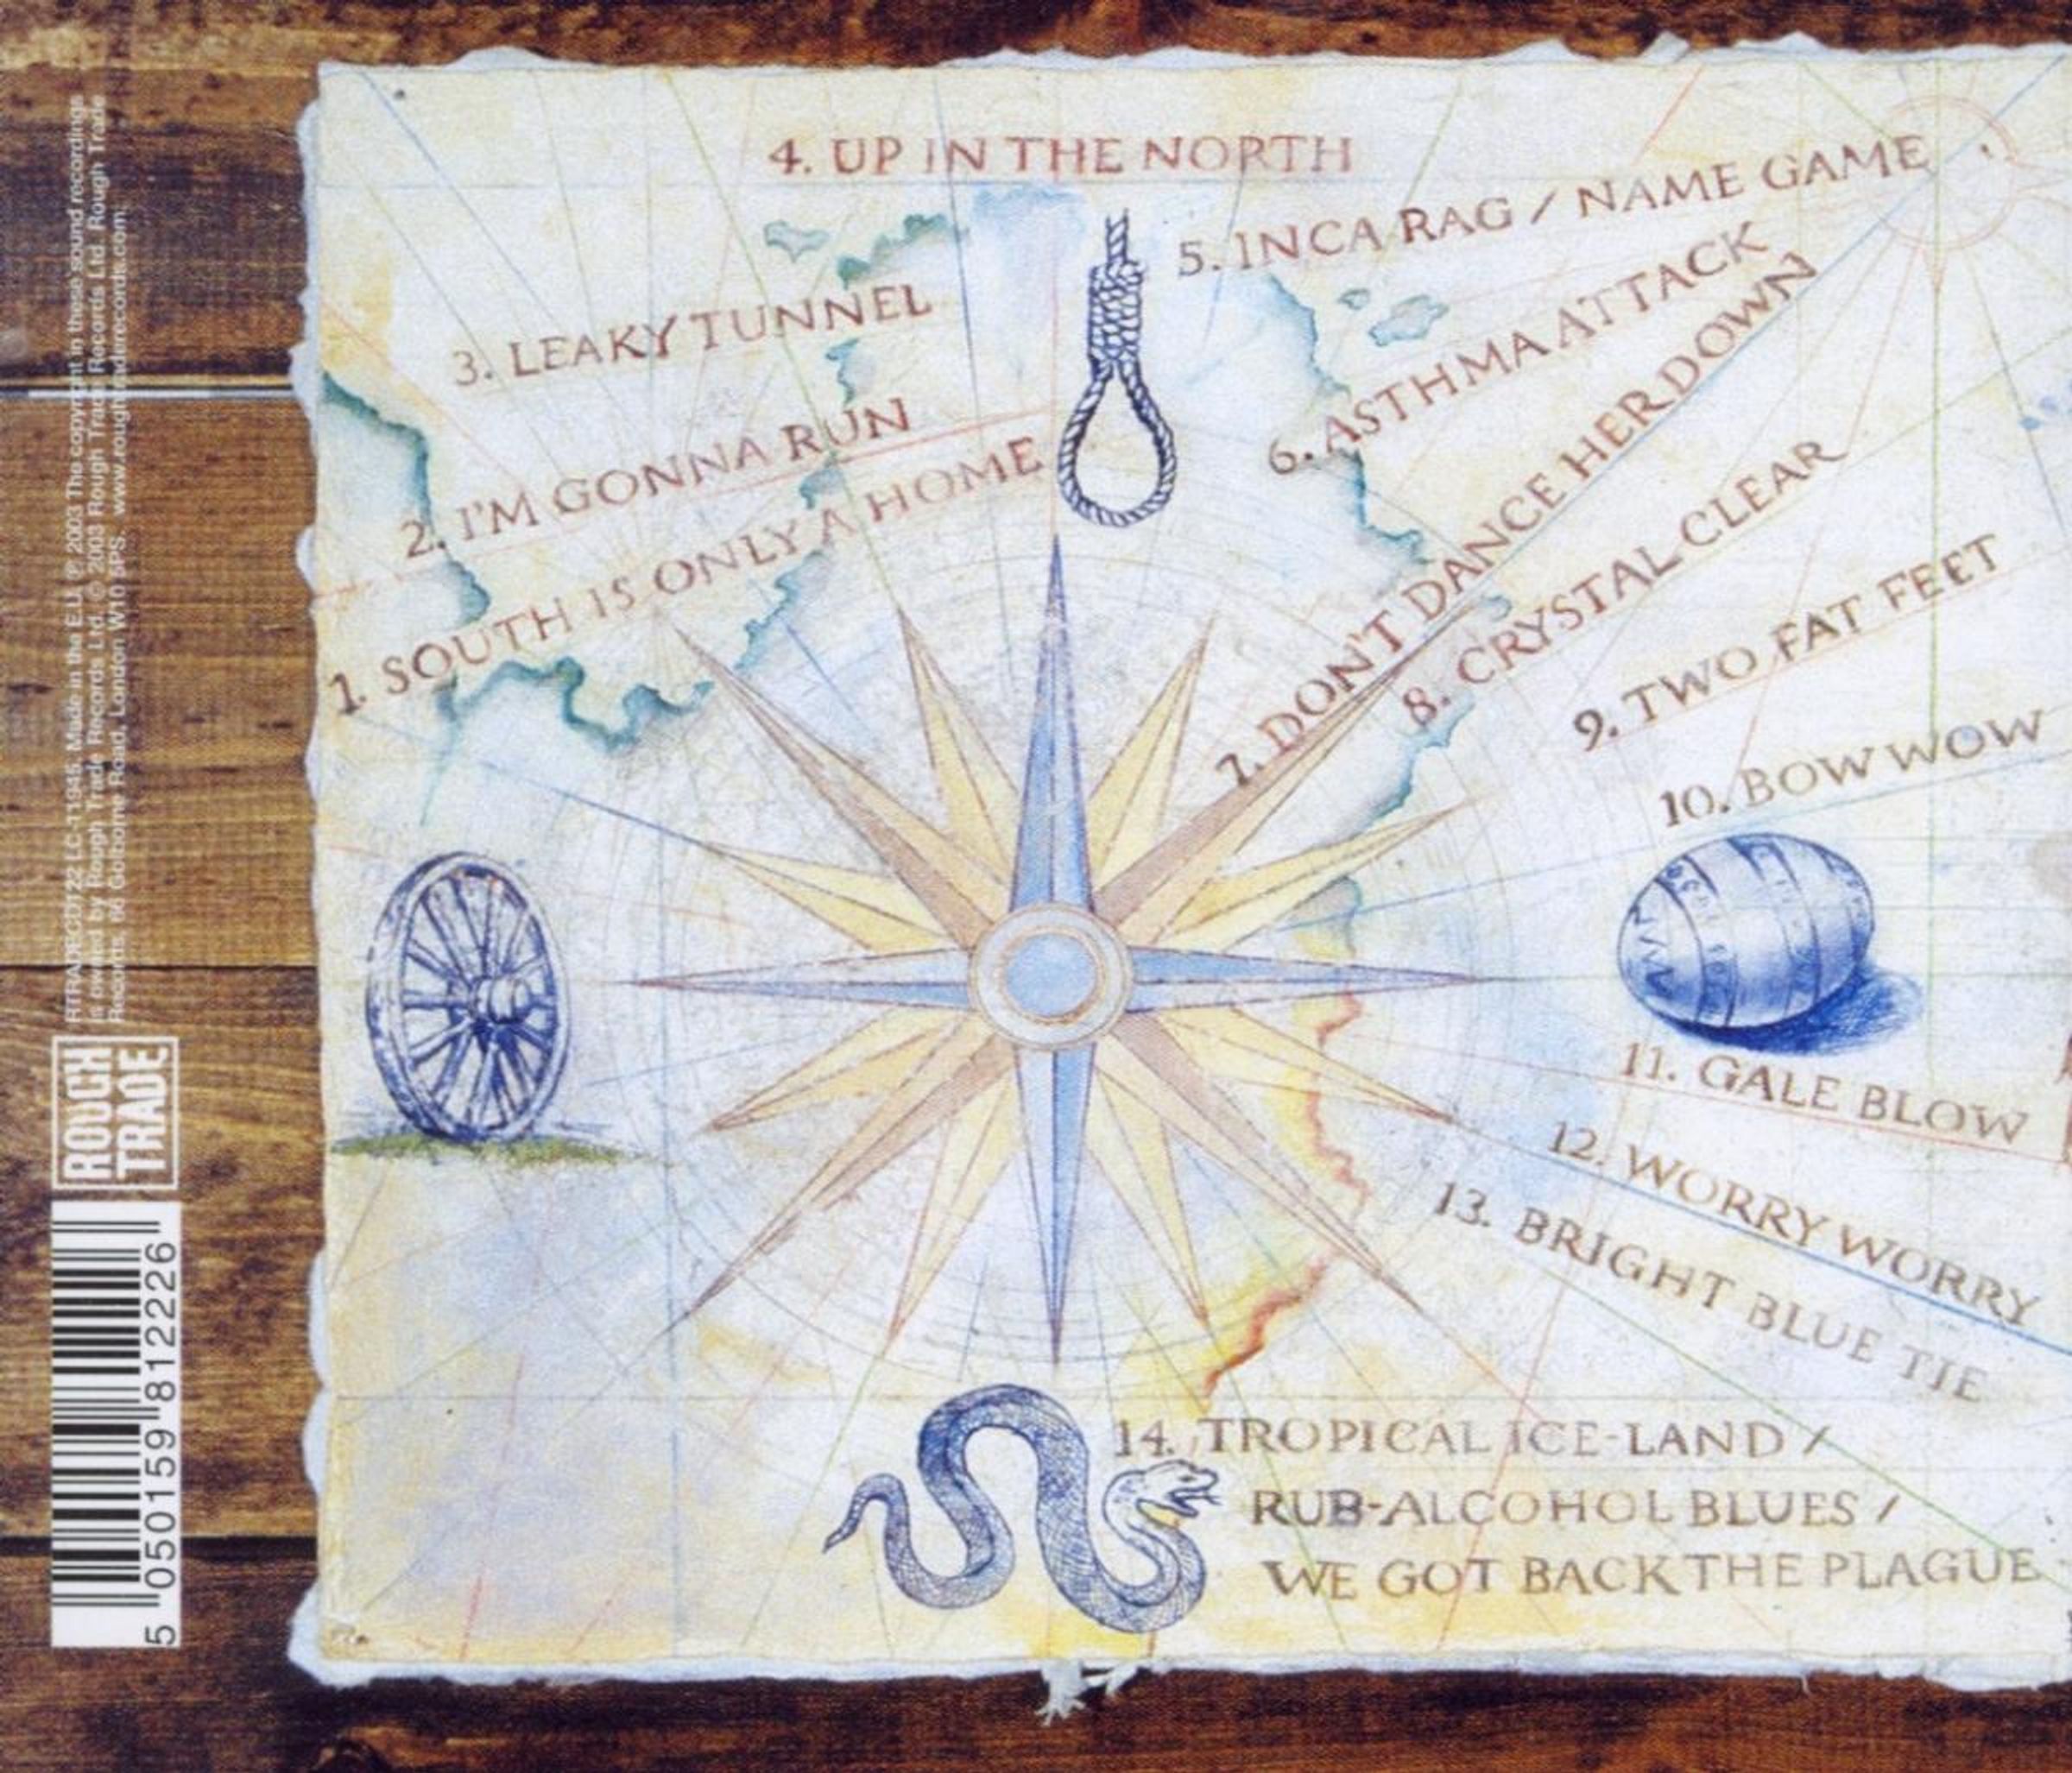 4. UP IN THE NORTH
5. INCA RAG / NAME GAME
3. LEAKY TUNNEL
6. ASTHMA ATTACK
2. I'M GONNA RUN
7. DON'T DANCE HER DOWN
1. SOUTH IS ONLY A HOME
8. CRYSTAL CLEAR
9. TWO FAT FEET
10. BOW WOW
11. GALE BLOW
12. WORRY WORRY
13. BRIGHT BLUE TIE
14. TROPICAL ICE-LAND /
RUB-ALCOHOL BLUES /
WE GOT BACK THE PLAGUE
RTRADECD122 LC-11945. Made in the E.U. ℗ 2003 The copyright in these sound recordings
is owned by Rough Trade Records Ltd. © 2003 Rough Trade Records Ltd. Rough Trade
Records, 66 Golborne Road, London W10 5PS. www.roughtraderecords.com
ROUGH
TRADE
5 050159 812226